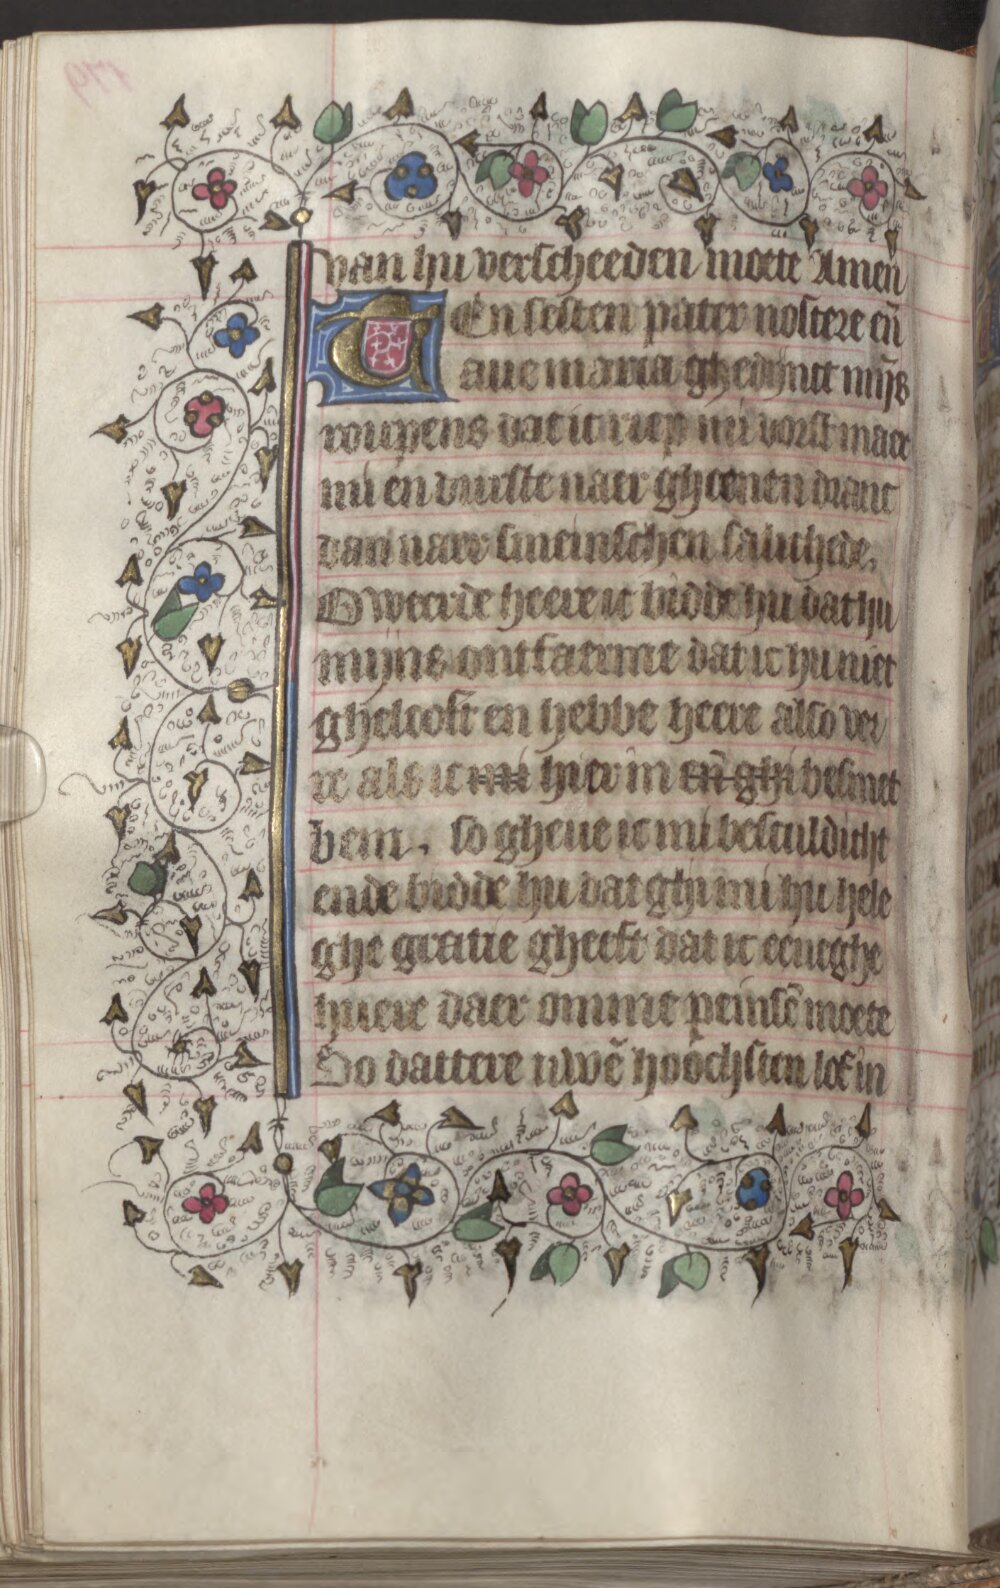 van hu verscheeden moete Amen̄
Een sesten pater nostere en̄
aue maria ghedijnct mijs
roupens dat ic riep mi dorst maer
mi en durste naer gheenen dranc
dan naer smeinschen salichede.
O weerde heere ic bidde hu dat hu
mijns ontfaerme dat ic hu niet
ghelooft en hebbe heere also ver
re als ic mi hier in en̄ ghi besmet
bem. so gheue ic mi besculdicht
ende bidde hu dat ghi mi hu hele
ghe gratie gheeft dat ic eeneghe
huere daer omme peinsē moete
So dattere uwē hoochsten lof in